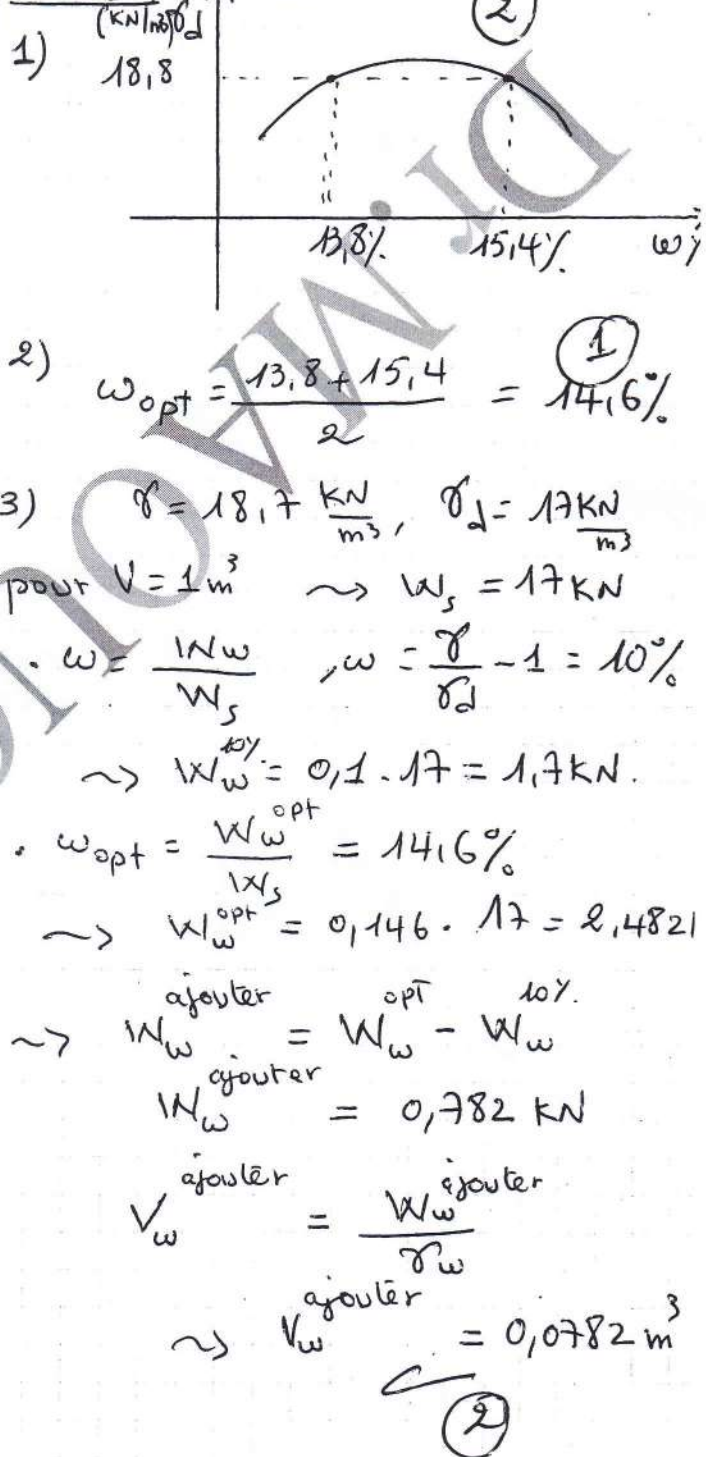 (KN/m³) γd
②
1) 18,8
13,8% 15,4% ω%
2) ω opt = (13,8 + 15,4) / 2 = 14,6% ①
3) γ = 18,7 KN/m³, γd = 17 KN/m³
pour V = 1 m³ ~> Ws = 17 KN
. ω = Ww / Ws , ω = γ/γd - 1 = 10%
~> Ww^10% = 0,1 . 17 = 1,7 KN.
. ω opt = Ww^opt / Ws = 14,6%
~> Ww^opt = 0,146 . 17 = 2,482
~> Ww^ajouter = Ww^opt - Ww^10%.
Ww^ajouter = 0,782 KN
Vw^ajouter = Ww^ajouter / γw
~> Vw^ajouter = 0,0782 m³
②